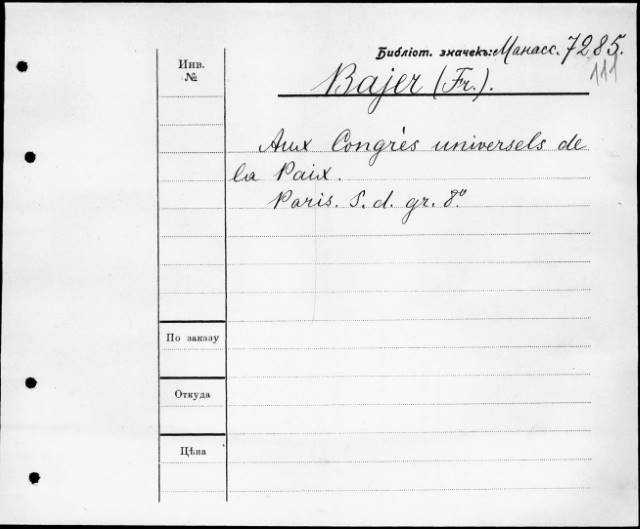 Инв.
№
Библіот. значекъ: Манасс. 7285.
111
Bajer (Fr.).
Aux Congrès universels de
la Paix.
Paris. S. d. gr. 8º.
По заказу
Откуда
Цѣна